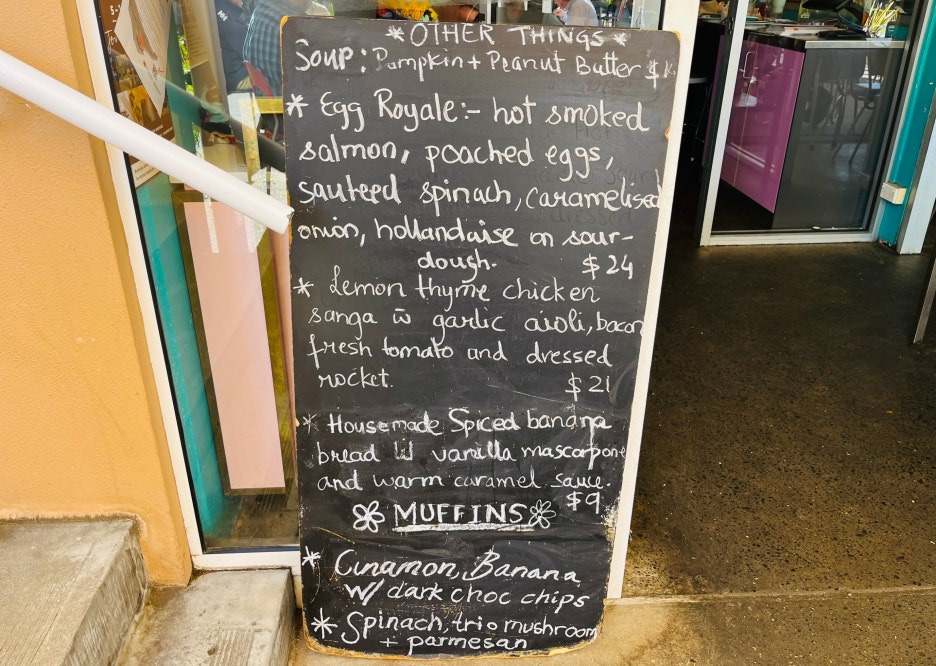 *OTHER THINGS*
Soup: Pumpkin + Peanut Butter $
* Egg Royale:- hot smoked
salmon, poached eggs,
sauteed spinach, caramelised
onion, hollandaise on sour-
dough. $24
* Lemon thyme chicken
sanga w garlic aioli, bacon
fresh tomato and dressed
rocket. $21
* Housemade Spiced banana
bread W vanilla mascarpone
and warm caramel sauce.
$9
MUFFINS
* Cinamon, Banana
w/ dark choc chips
* Spinach, trio mushroom
+ parmesan